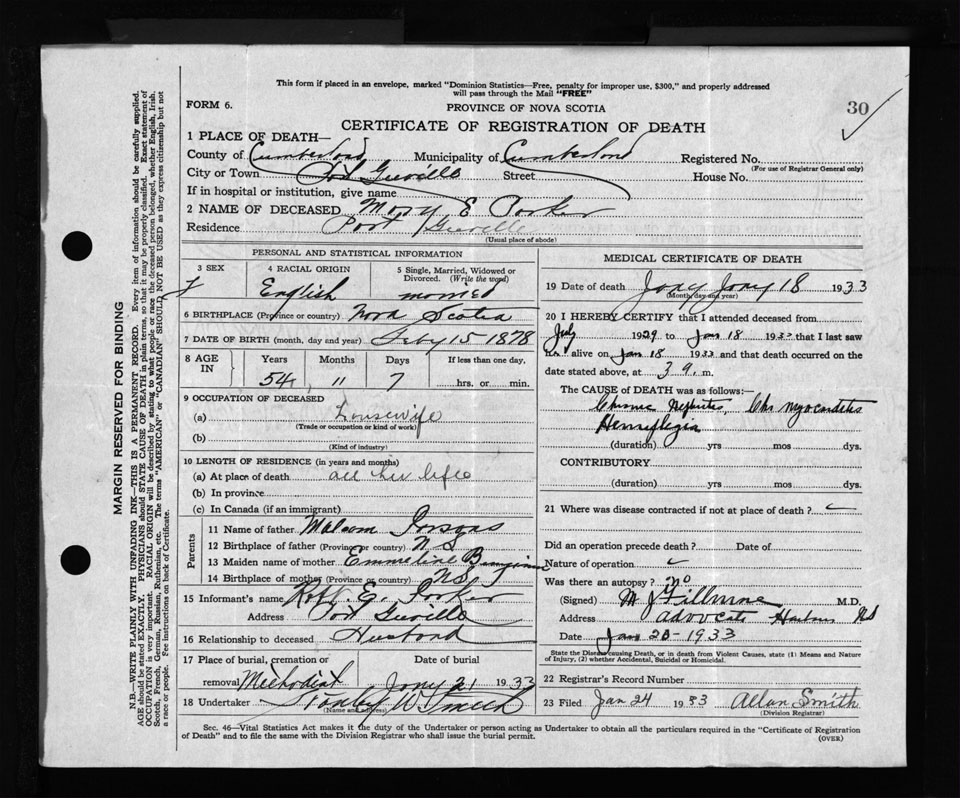 This form if placed in an envelope, marked "Dominion Statistics—Free, penalty for improper use, $300," and properly addressed
will pass through the Mail "FREE"
FORM 6.
PROVINCE OF NOVA SCOTIA
30
CERTIFICATE OF REGISTRATION OF DEATH
1 PLACE OF DEATH—
County of Cumberland Municipality of Cumberland Registered No.
(For use of Registrar General only)
City or Town Port Greville Street House No.
If in hospital or institution, give name
2 NAME OF DECEASED Mary E Parker
Residence Port Greville
(Usual place of abode)
PERSONAL AND STATISTICAL INFORMATION
3 SEX 4 RACIAL ORIGIN 5 Single, Married, Widowed or Divorced. (Write the word)
F English married
6 BIRTHPLACE (Province or country) Nova Scotia
7 DATE OF BIRTH (month, day and year) Feby 15 1878
8 AGE IN Years Months Days If less than one day.
54 11 7 hrs. or min.
9 OCCUPATION OF DECEASED
(a) Housewife
(Trade or occupation or kind of work)
(b)
(Kind of industry)
10 LENGTH OF RESIDENCE (in years and months)
(a) At place of death all her life
(b) In province
(c) In Canada (if an immigrant)
Parents
11 Name of father Malcom Parsons
12 Birthplace of father (Province or country) N S
13 Maiden name of mother Emmeline
14 Birthplace of mother (Province or country) NS
15 Informant's name Robt. E. Parker
Address Port Greville
16 Relationship to deceased Husband
17 Place of burial, cremation or Date of burial
removal Methodist Jany 21 1933
18 Undertaker Smith
(Name and address)
MEDICAL CERTIFICATE OF DEATH
19 Date of death Jany 18 1933
(Month, day and year)
20 I HEREBY CERTIFY that I attended deceased from
July 1929 to Jan 18 1933 that I last saw
her alive on Jan 18 1933 and that death occurred on
date stated above, at 3 a. m.
The CAUSE OF DEATH was as follows:—
Chronic Nephritis, Chr myocarditis
Hemiplegia
(duration) yrs mos dys.
CONTRIBUTORY
(duration) yrs mos dys.
21 Where was disease contracted if not at place of death?
Did an operation precede death? Date of
Nature of operation
Was there an autopsy? no
(Signed) M J Fillmore M.D.
Address Advocate Harbour NS
Date Jan 20-1933
State the Disease causing Death, or in death from Violent Causes, state (1) Means and Nature
of Injury, (2) whether Accidental, Suicidal or Homicidal.
22 Registrar's Record Number
23 Filed Jan 24 1933 Allan Smith
(Division Registrar)
Sec. 46—Vital Statistics Act makes it the duty of the Undertaker or person acting as Undertaker to obtain all the particulars required in the "Certificate of Registration
of Death" and to file the same with the Division Registrar who shall issue the burial permit.
(OVER)
MARGIN RESERVED FOR BINDING
N.B.—WRITE PLAINLY WITH UNFADING INK—THIS IS A PERMANENT RECORD. Every item of information should be carefully supplied.
AGE should be stated EXACTLY. PHYSICIANS should STATE CAUSE OF DEATH in plain terms, so that it may be properly classified. Exact statement of
OCCUPATION is very important. RACIAL ORIGIN will be described by stating to what people or race the deceased person belonged, whether English, Irish,
Scotch, French, German, Russian, Ruthenian, etc. The terms "AMERICAN" or "CANADIAN" SHOULD NOT BE USED as they express citizenship but not
a race or people. Fee instructions on back of Certificate.